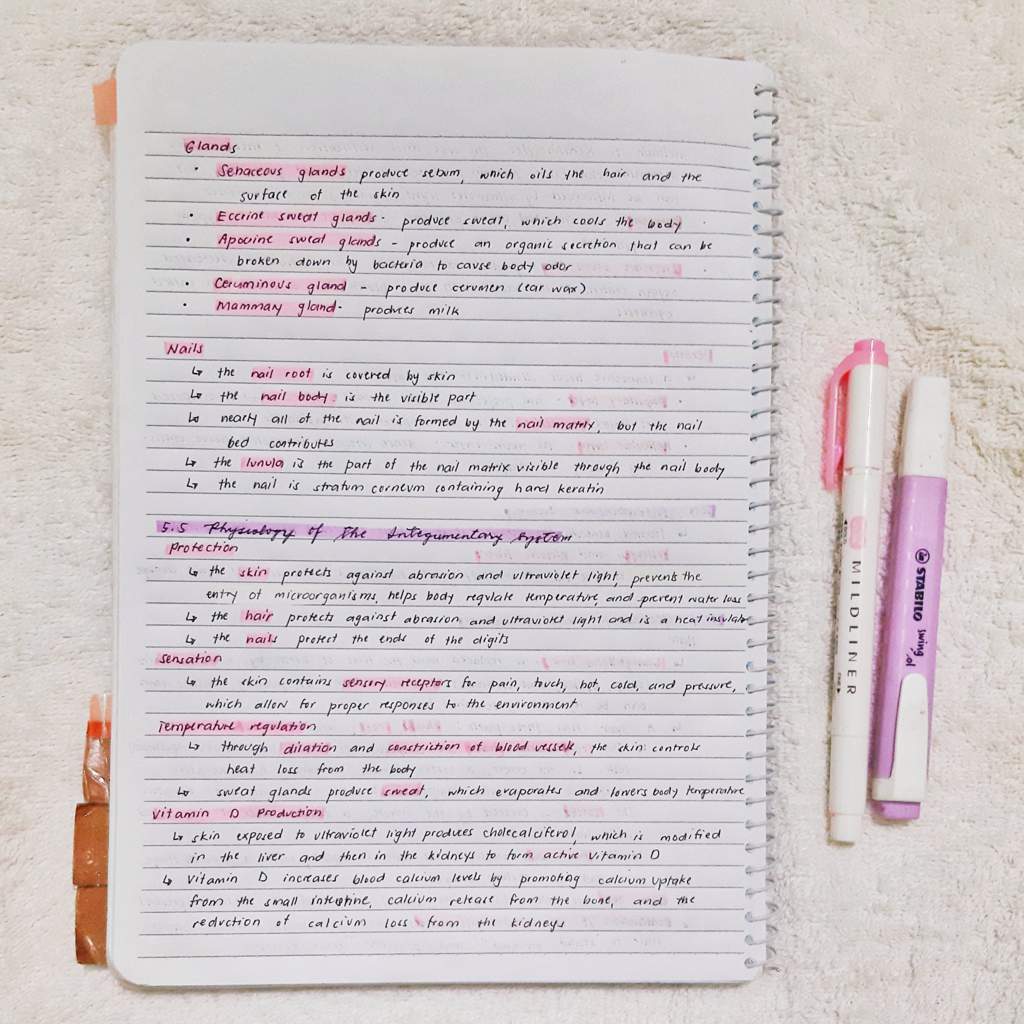 Glands
• Sebaceous glands produce sebum, which oils the hair and the
surface of the skin
• Eccrine sweat glands - produce sweat, which cools the body
• Apocrine sweat glands - produce an organic secretion that can be
broken down by bacteria to cause body odor
• Ceruminous gland - produce cerumen (ear wax)
• Mammary gland - produces milk
Nails
↳ the nail root is covered by skin
↳ the nail body is the visible part
↳ nearly all of the nail is formed by the nail matrix, but the nail
bed contributes
↳ the lunula is the part of the nail matrix visible through the nail body
↳ the nail is stratum corneum containing hard keratin
5.5 Physiology of the Integumentary System
Protection
↳ the skin protects against abrasion and ultraviolet light, prevents the
entry of microorganisms, helps body regulate temperature, and prevent water loss
↳ the hair protects against abrasion and ultraviolet light and is a heat insulator
↳ the nails protect the ends of the digits
Sensation
↳ the skin contains sensory receptors for pain, touch, hot, cold, and pressure,
which allow for proper responses to the environment
Temperature regulation
↳ through dilation and constriction of blood vessels, the skin controls
heat loss from the body
↳ sweat glands produce sweat, which evaporates and lowers body temperature
Vitamin D Production
↳ skin exposed to ultraviolet light produces cholecalciferol, which is modified
in the liver and then in the kidneys to form active Vitamin D
↳ Vitamin D increases blood calcium levels by promoting calcium uptake
from the small intestine, calcium release from the bone, and the
reduction of calcium loss from the kidneys
MILDLINER
STABILO
swing
cool